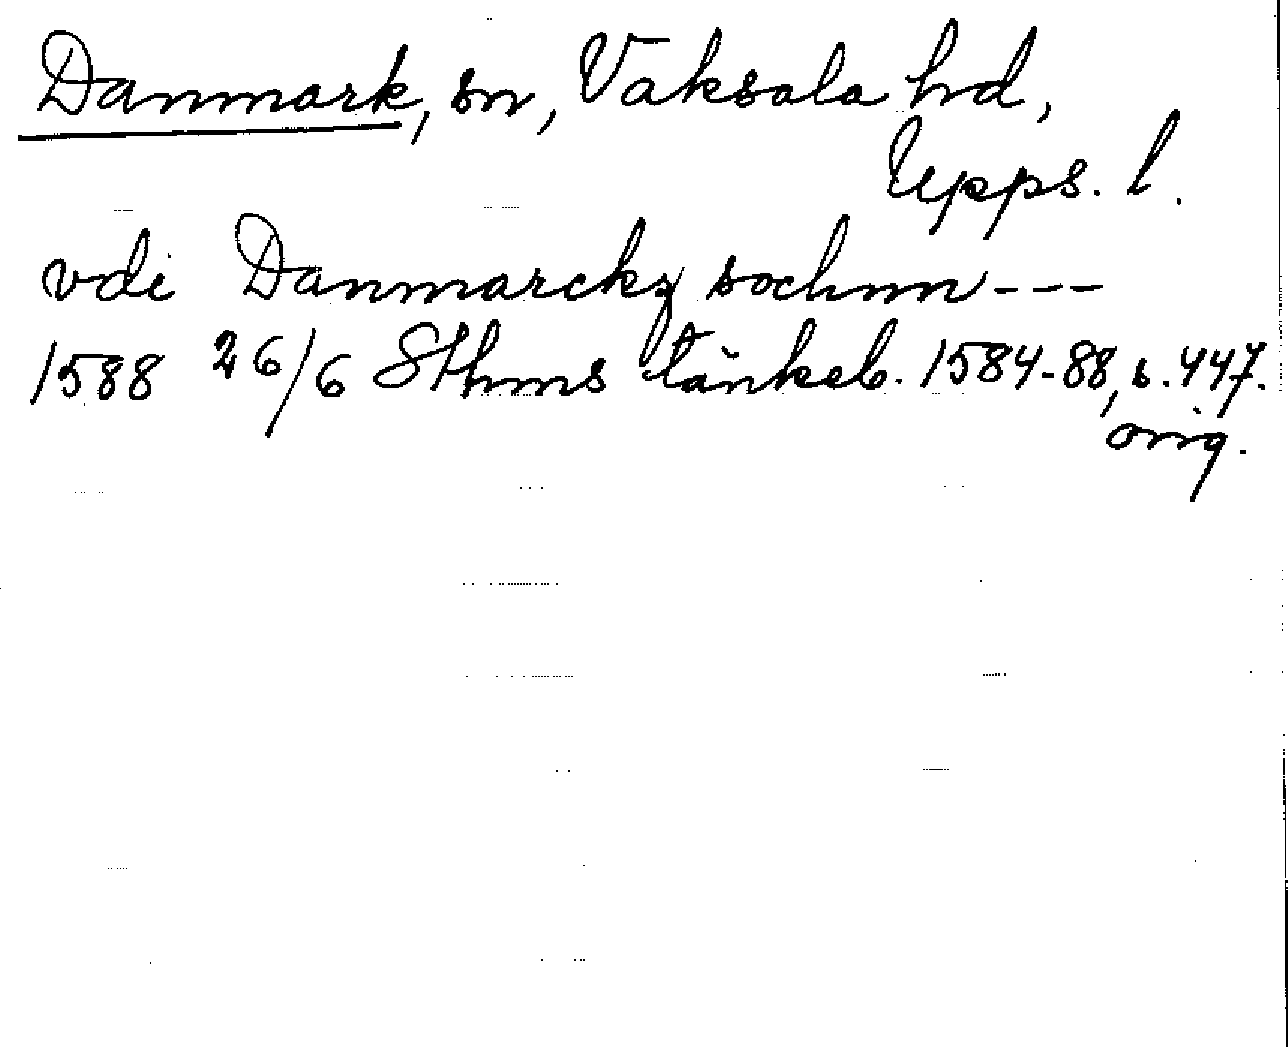 Danmark, sn, Vaksala hd,
Upps. l.
vdi Danmarckz sochnn ---
1588 26/6 Sthms tänkeb. 1584-88, s. 447.
orig.